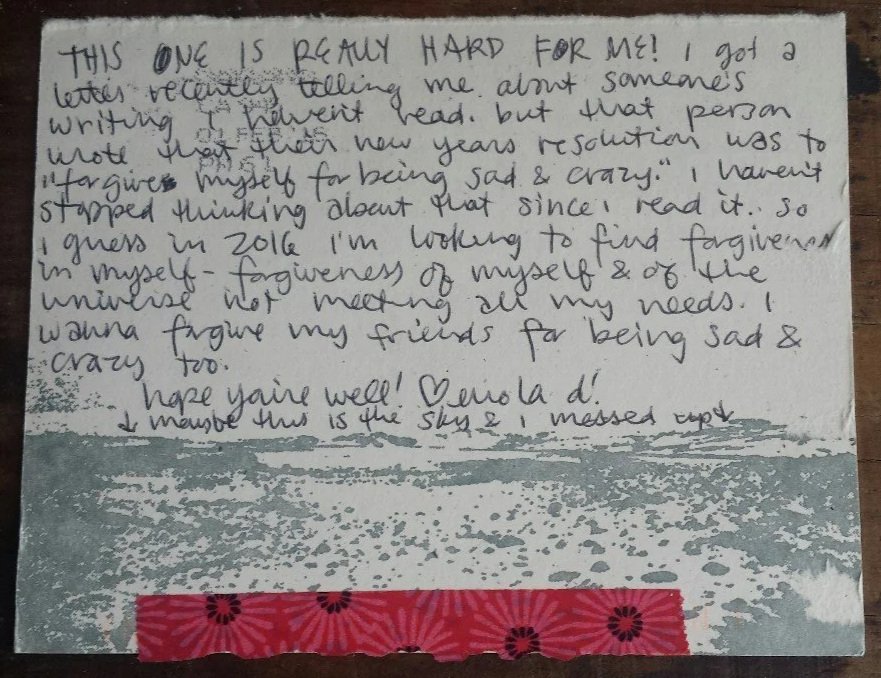 THIS ONE IS REALLY HARD FOR ME! I got a
letter recently telling me about someone's
writing I haven't read. but that person
wrote that their new years resolution was to
"forgive myself for being sad & crazy." I haven't
stopped thinking about that since I read it.. so
I guess in 2016 I'm looking to find forgiveness
in myself - forgiveness of myself & of the
universe not meeting all my needs. I
wanna forgive my friends for being sad &
crazy too.
hope you're well! ♡ enola d!
↓ maybe this is the sky & I messed up ↓
01 FEB